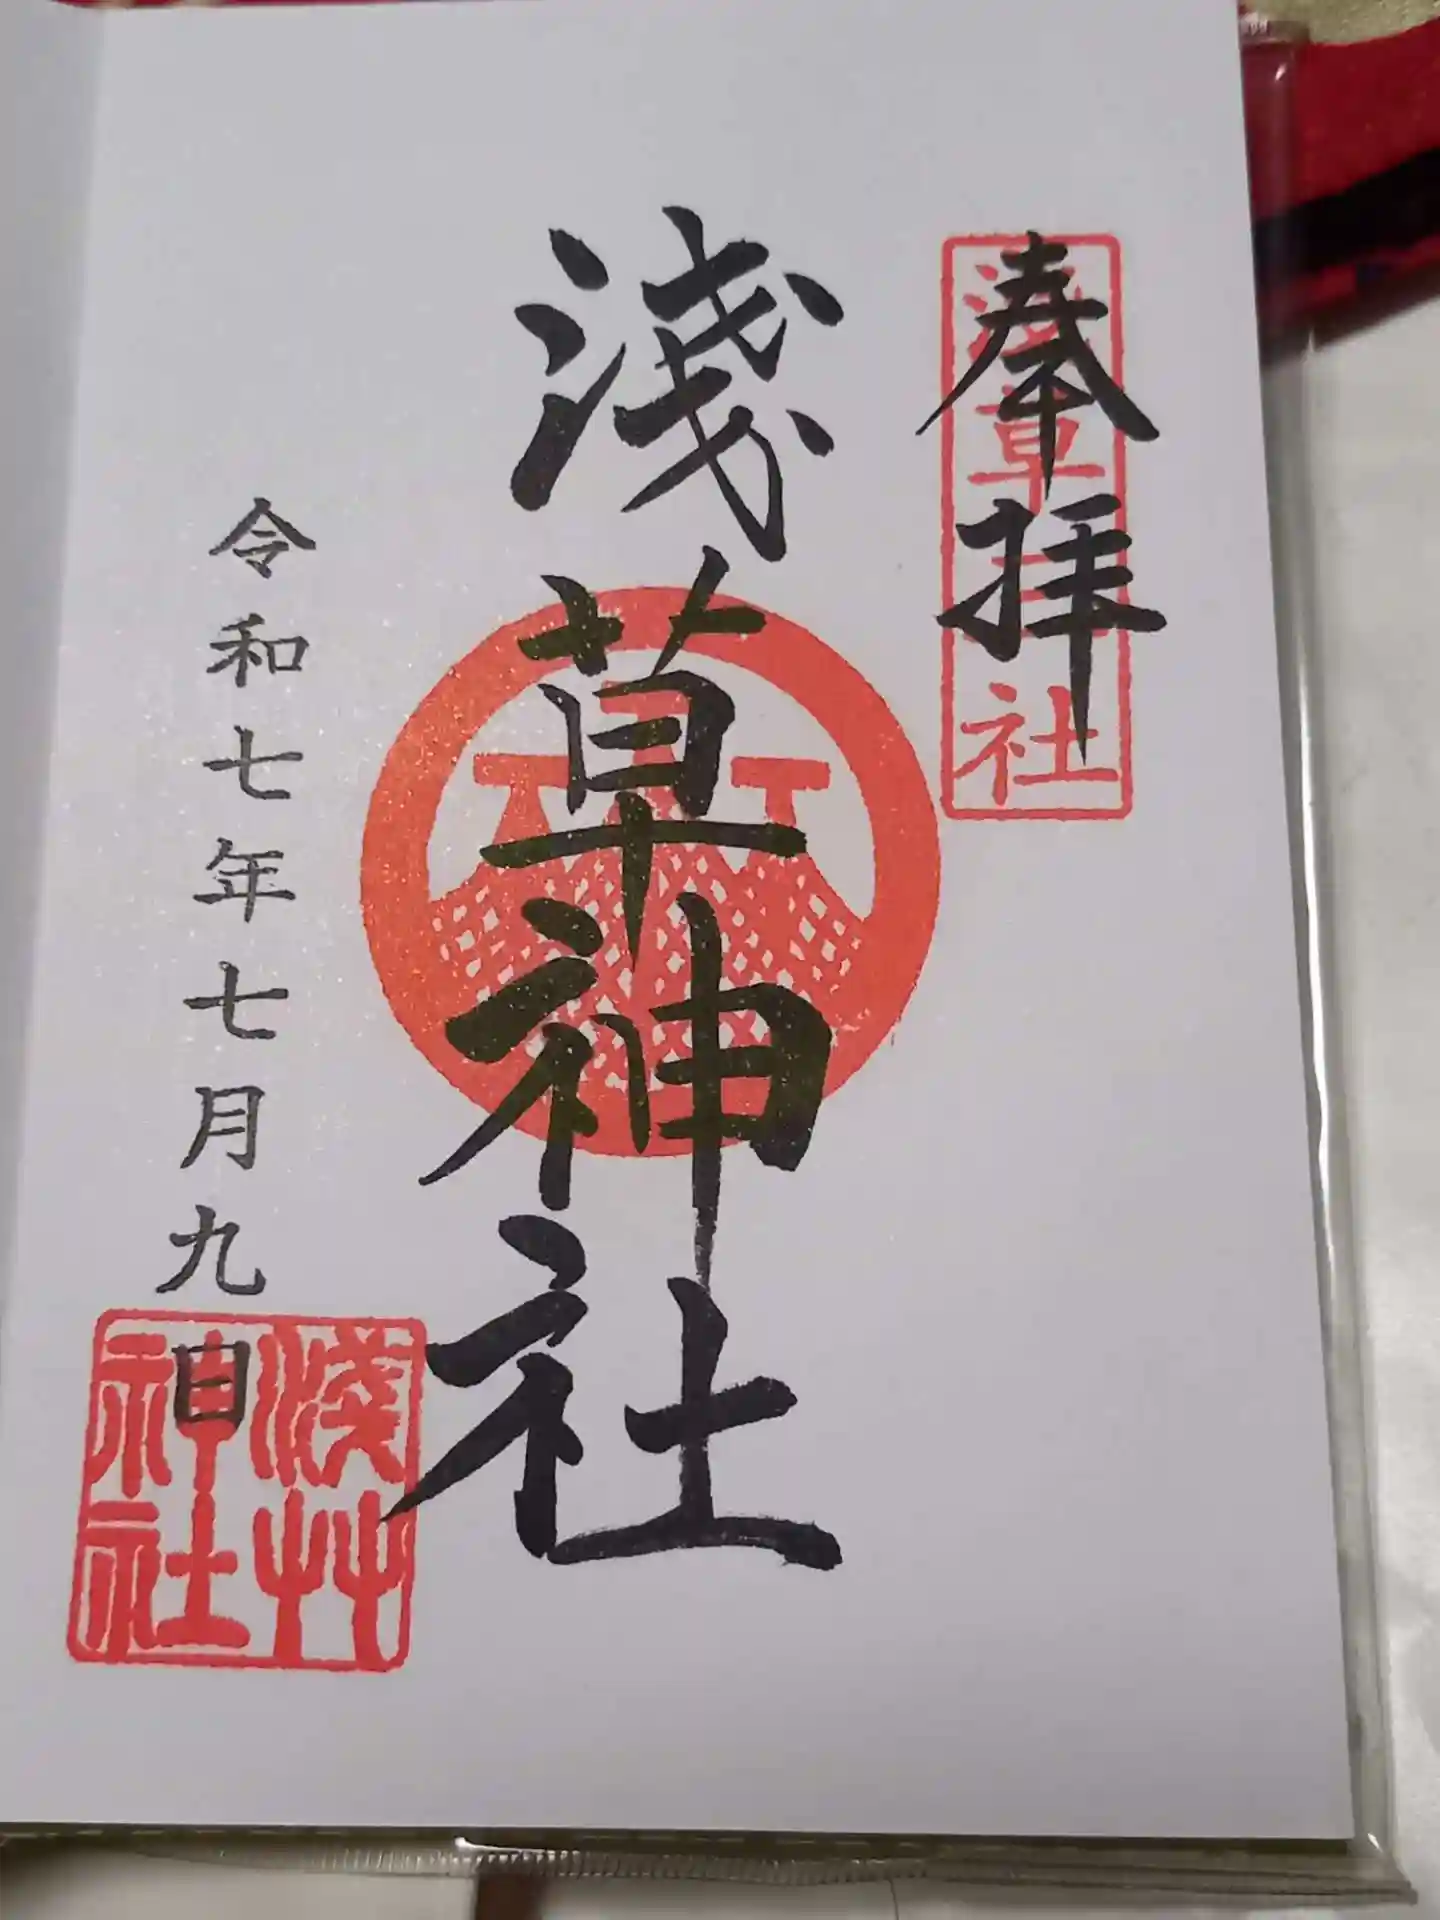 奉拝
浅草三社
浅草神社
令和七年七月九日
浅艸
神社